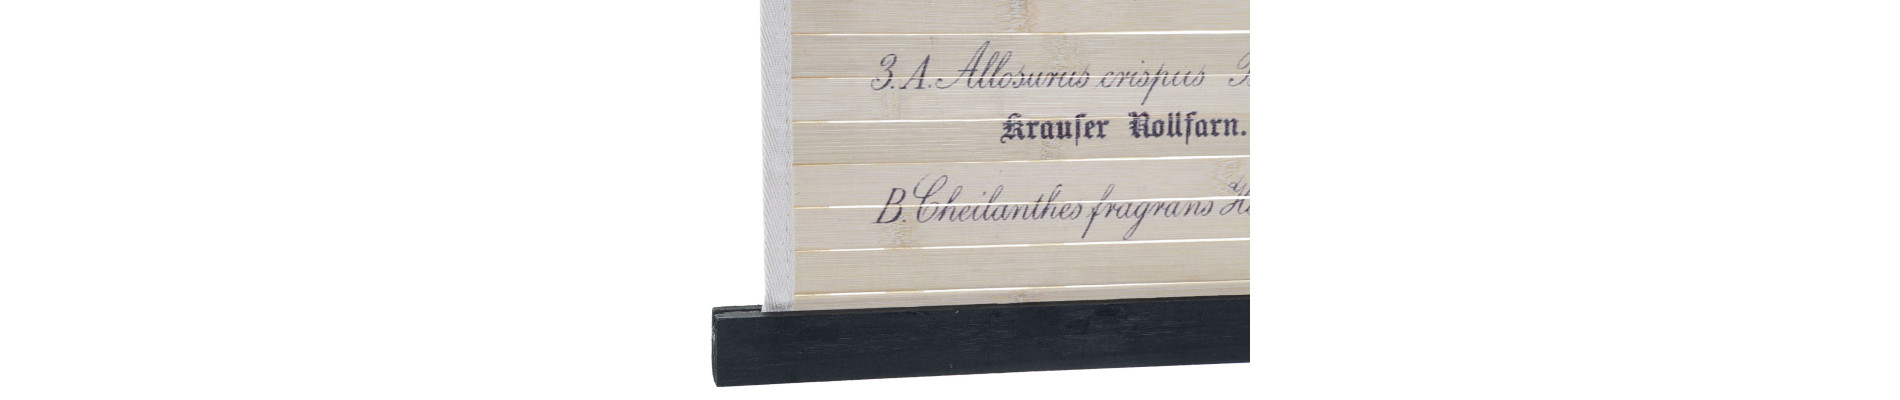 3. A. Allosurus crispus
Krauſer Rollfarn.
B. Cheilanthes fragrans